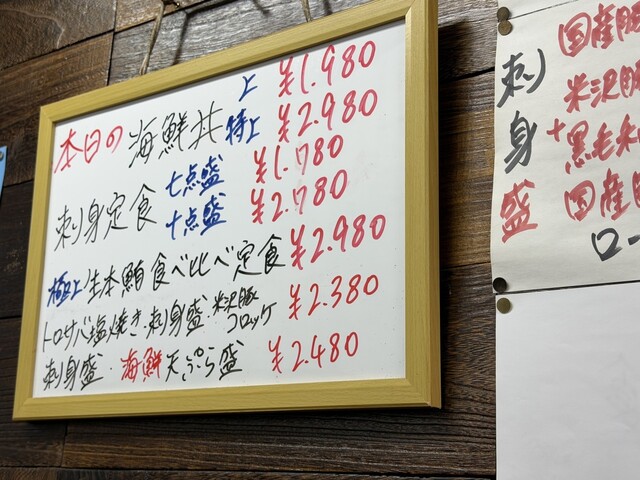 本日の 海鮮丼 上 ¥1.980
特上 ¥2.980
刺身定食 七点盛 ¥1.780
十点盛 ¥2.780
極上 生本鮪食べ比べ定食 ¥2.980
トロサバ塩焼き・刺身盛・米沢豚コロッケ ¥2.380
刺身盛・海鮮天ぷら盛 ¥2.480
刺身盛
+
国産豚
米沢豚
黒毛和
国産
ロー